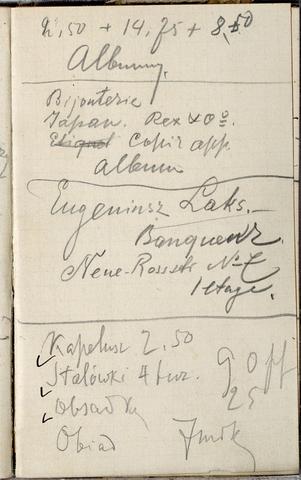 2,50 + 14,75 + 8,50
Albumy.
Bijouterie
Japan. Rex & Co
Copir app.
album
Eugeniusz Laks.
Banquier
Neue-Rossstr No
1 Etage.
Kapelusz 2.50
Stalówki 4 tuz.
Obsadki
Obiad
25